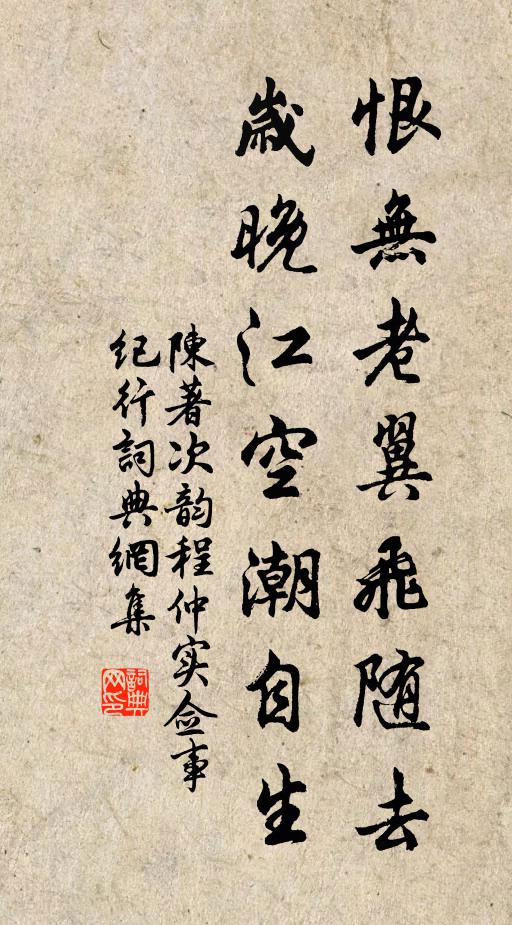 恨無老翼飛随去
歳晚江空潮自生
陳著次韵程仲实佥事
纪行詞典網集
詞典网印